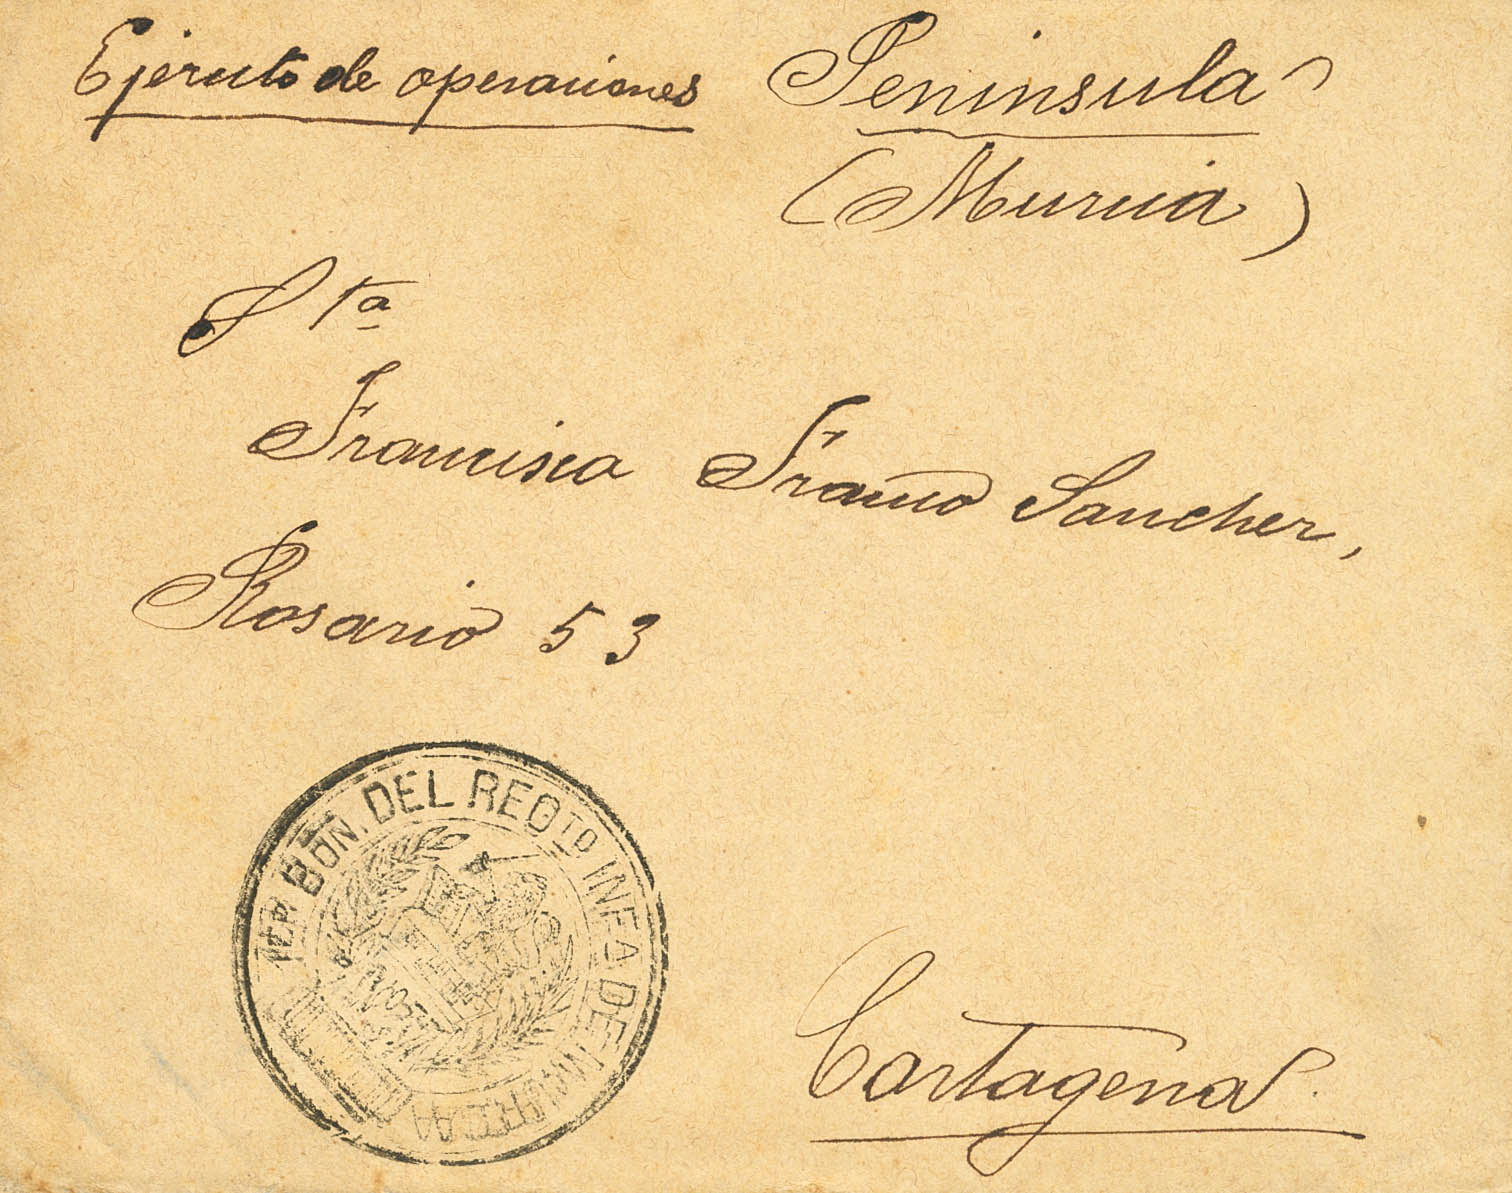 Ejercito de operaciones
Peninsula
(Murcia)
Sta
Francisca Franco Sanchez,
Rosario 53
1ER BON. DEL REGTO INFA DE
Cartagena